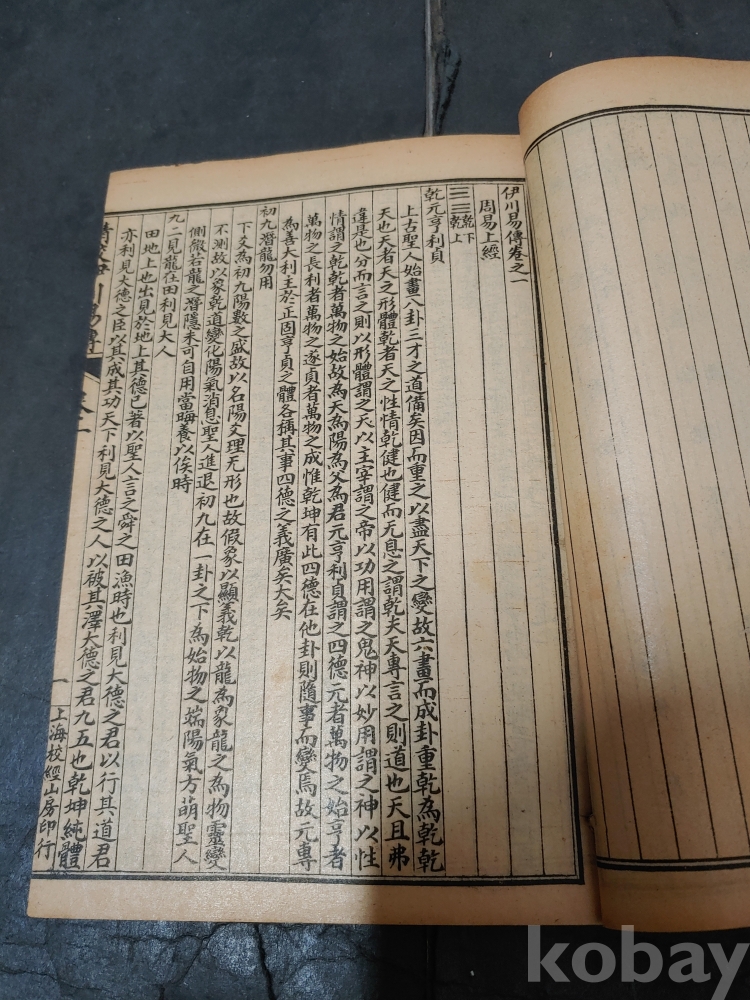 伊川易傳卷之一
周易上經
☰☰乾下乾上
乾元亨利貞
上古聖人始畫八卦三才之道備矣因而重之以盡天下之變故六畫而成卦重乾為乾乾
天也天者天之形體乾者天之性情乾健也健而无息之謂乾夫天專言之則道也天且弗
違是也分而言之則以形體謂之天以主宰謂之帝以功用謂之鬼神以妙用謂之神以性
情謂之乾乾者萬物之始故為天為陽為父為君元亨利貞謂之四德元者萬物之始亨者
萬物之長利者萬物之遂貞者萬物之成惟乾坤有此四德在他卦則隨事而變焉故元專
為善大利主於正固亨貞之體各稱其事四德之義廣矣大矣
初九潛龍勿用
下爻為初九陽數之盛故以名陽爻理无形也故假象以顯義乾以龍為象龍之為物靈變
不測故以象乾道變化陽氣消息聖人進退初九在一卦之下為始物之端陽氣方萌聖人
側微若龍之潛隱未可自用當晦養以俟時
九二見龍在田利見大人
田地上也出見於地上其德已著以聖人言之舜之田漁時也利見大德之君以行其道君
亦利見大德之臣以共成其功天下利見大德之人以被其澤大德之君九五也乾坤純體
川易傳
一
上海校經山房印行
kobay